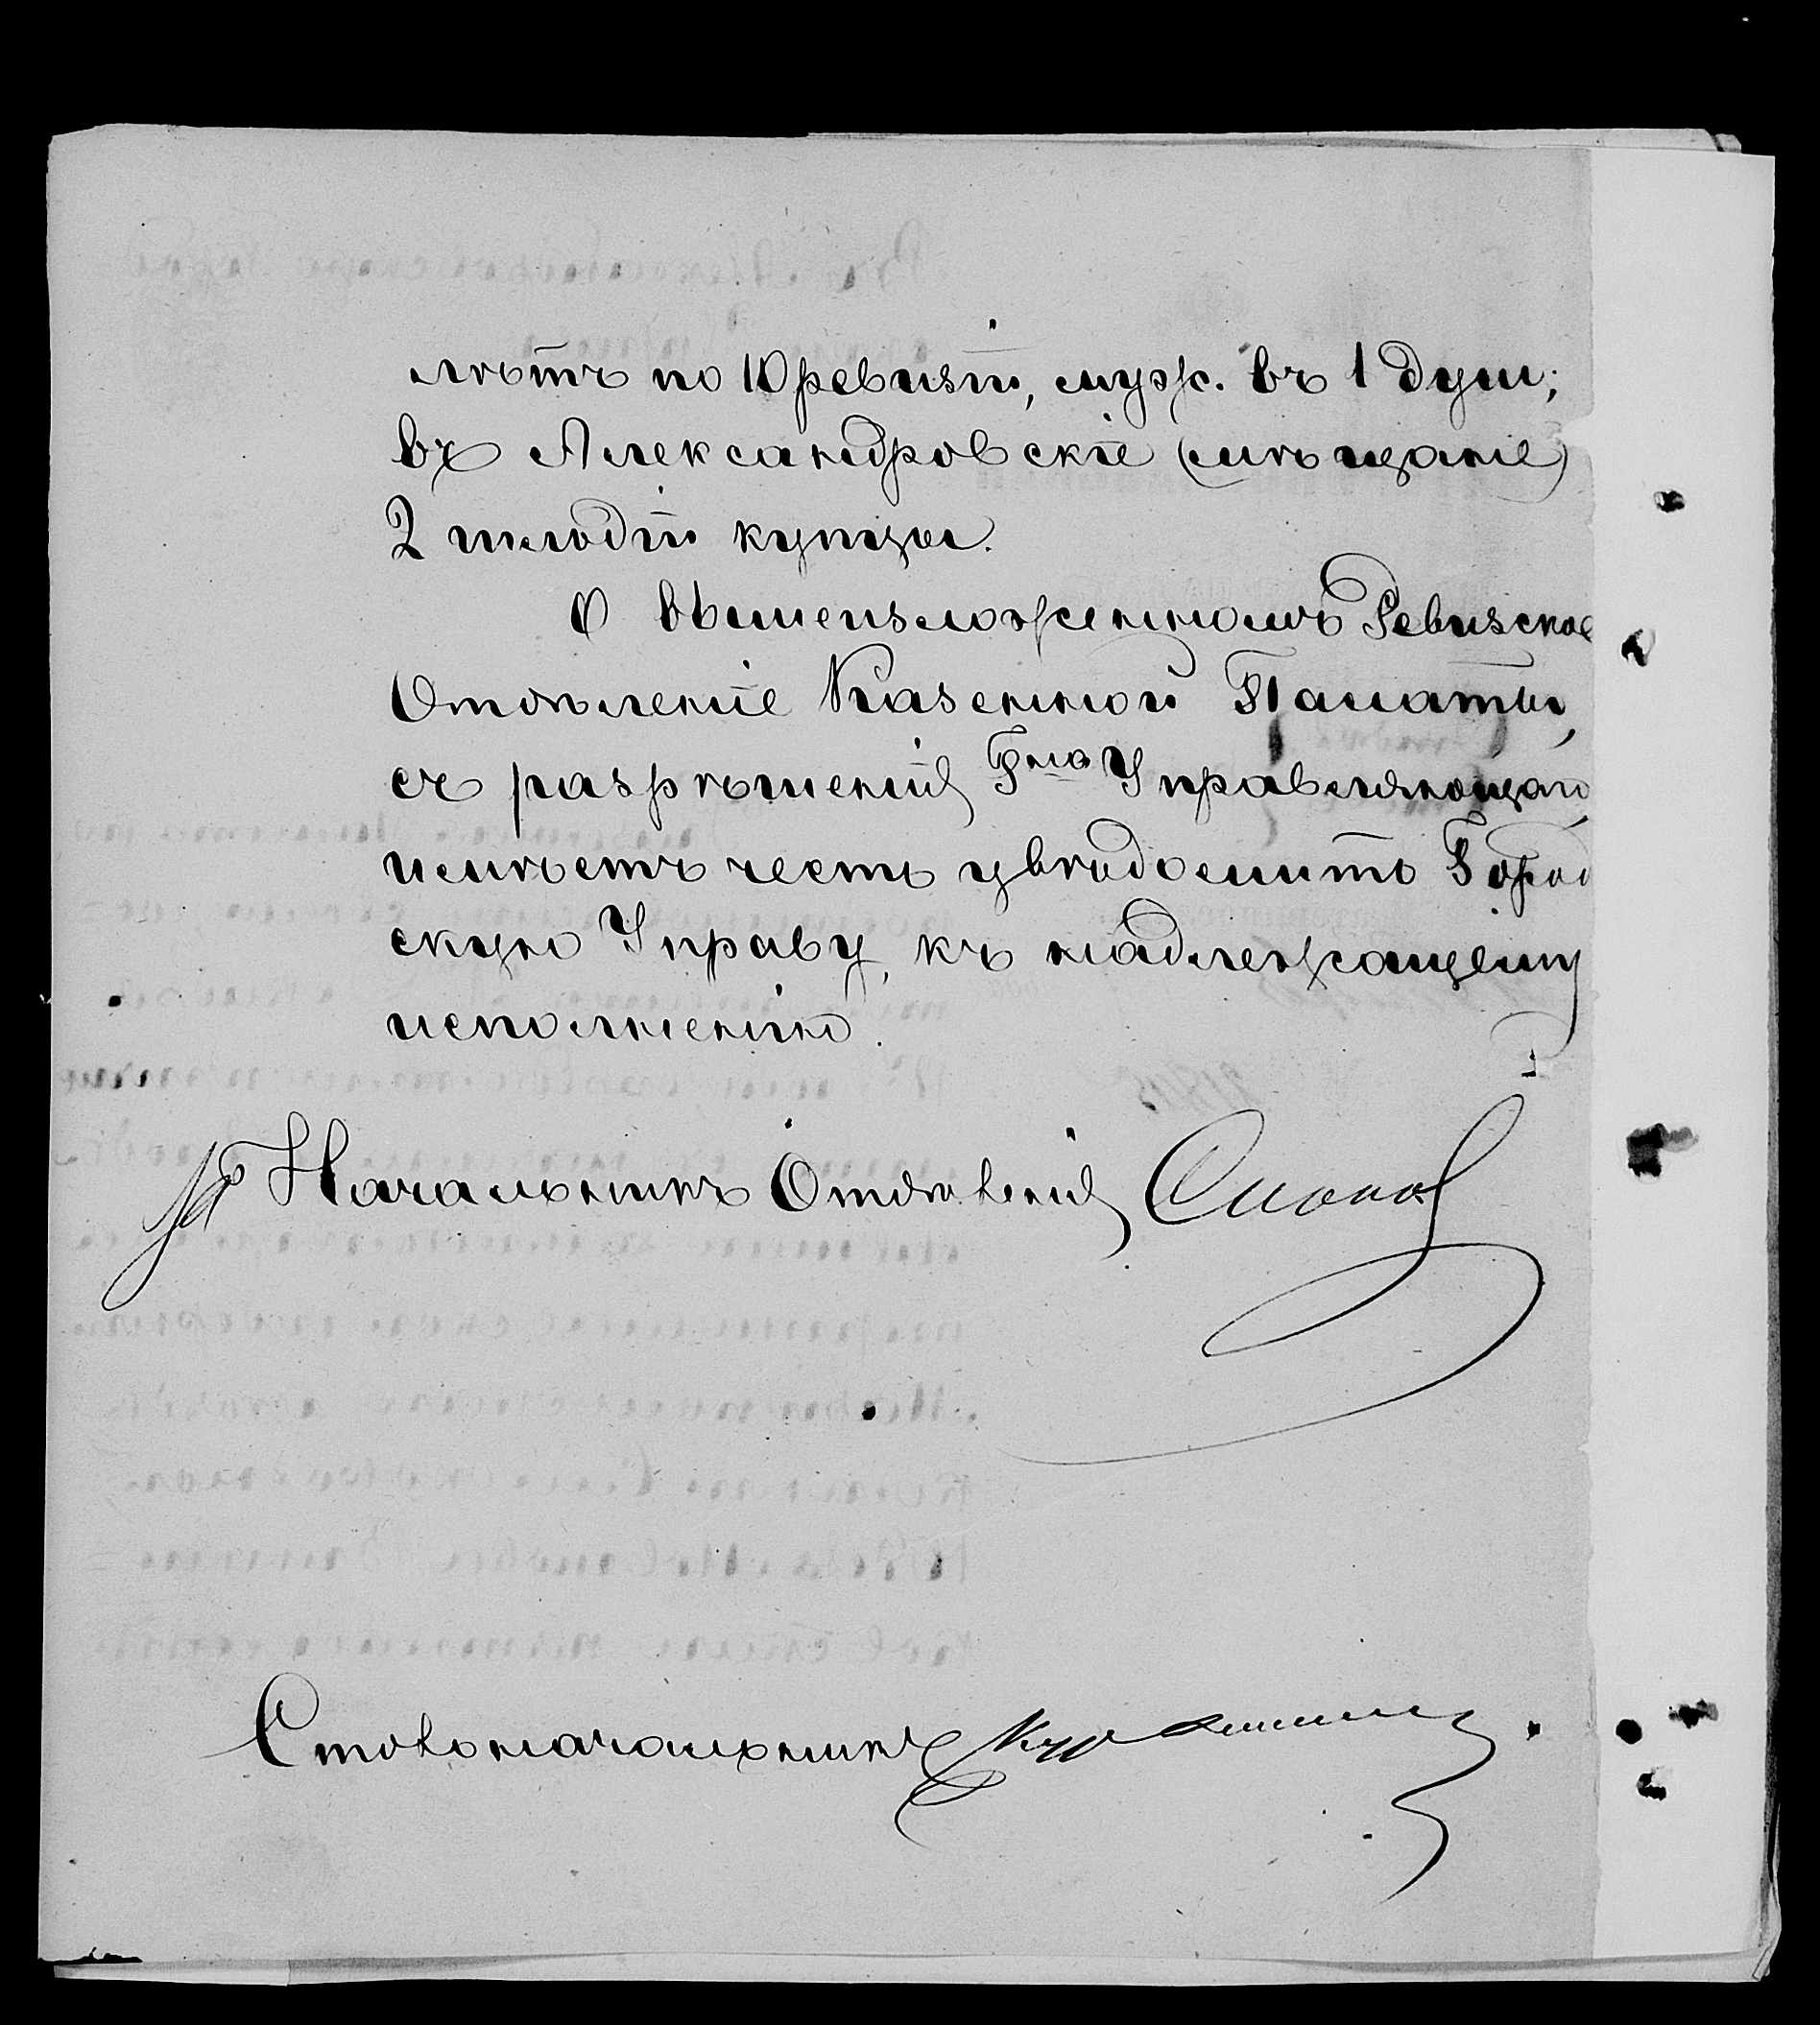 лѣтъ по 10 ревизіи, муж. въ 1 душ;
въ Александровскіе (мѣщане)
2 гильдіи купцы.
О вышеизложенномъ Ревизское
Отдѣленіе Казенной Палаты,
съ разрѣшенія Гна Управляющаго
имѣетъ честь увѣдомить Город
скую Управу, къ надлежащему
исполненію.
За Начальника Отдѣленія
Столоначальникъ